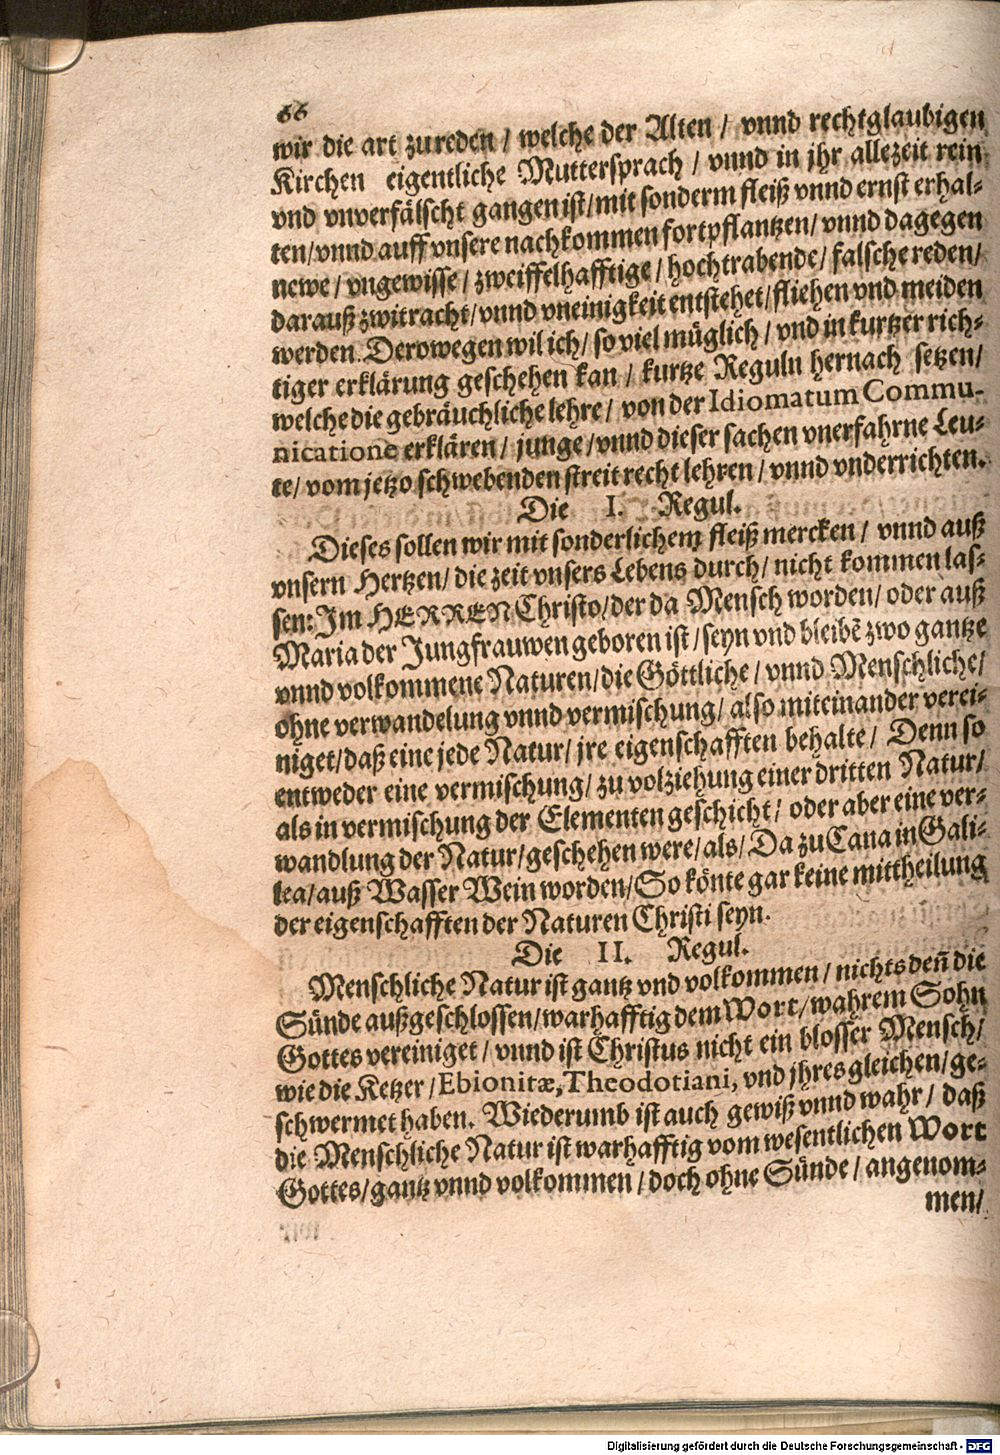 66
wir die art zureden / welche der Alten / vnnd rechtglaubigen
Kirchen eigentliche Muttersprach / vnnd in jhr allezeit rein
vnd vnverfälscht gangen ist/ mit sonderm fleiß vnnd ernst erhal-
ten/ vnnd auff vnsere nachkommen fortpflantzen/ vnnd dagegen
newe / vngewisse / zweiffelhafftige / hochtrabende / falsche reden/
darauß zwitracht/ vnnd vneinigkeit entstehet/ fliehen vnd meiden
werden. Derowegen wil ich/ so viel müglich / vnd in kurtzer rich-
tiger erklärung geschehen kan / kurtze Reguln hernach setzen/
welche die gebräuchliche lehre / von der Idiomatum Commu-
nicatione erklären / junge / vnnd dieser sachen vnerfahrne Leu-
te/ vom jetzo schwebenden streit recht lehren / vnnd vnderrichten.
Die I. Regul.
Dieses sollen wir mit sonderlichem fleiß mercken / vnnd auß
vnsern Hertzen/ die zeit vnsers Lebens durch/ nicht kommen las-
sen: Im HERREN Christo/ der da Mensch worden/ oder auß
Maria der Jungfrauwen geboren ist / seyn vnd bleibē zwo gantze
vnnd volkommene Naturen/ die Göttliche / vnnd Menschliche/
ohne verwandelung vnnd vermischung/ also miteinander verei-
niget/ daß eine jede Natur/ jre eigenschafften behalte / Denn so
entweder eine vermischung/ zu volziehung einer dritten Natur/
als in vermischung der Elementen geschicht / oder aber eine ver-
wandlung der Natur/ geschehen were/ als/ Da zu Cana in Gali-
lea/ auß Wasser Wein worden/ So könte gar keine mittheilung
der eigenschafften der Naturen Christi seyn.
Die II. Regul.
Menschliche Natur ist gantz vnd volkommen / nichts deñ die
Sünde außgeschlossen/ warhafftig dem Wort/ wahrem Sohn
Gottes vereiniget / vnnd ist Christus nicht ein blosser Mensch/
wie die Ketzer / Ebionitæ, Theodotiani, vnd jhres gleichen/ ge-
schwermet haben. Wiederumb ist auch gewiß vnnd wahr / daß
die Menschliche Natur ist warhafftig vom wesentlichen Wort
Gottes/ gantz vnnd volkommen / doch ohne Sünde / angenom-
men/
Digitalisierung gefördert durch die Deutsche Forschungsgemeinschaft - DFG